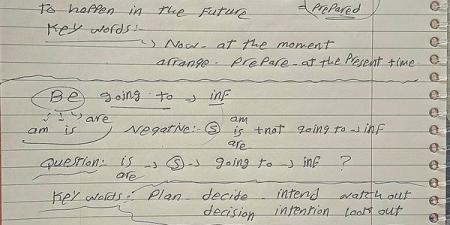 To happen in the future = prepared
Key words:-
↳ Now - at the moment
arrange - prepare - at the present time
Be going to → inf
am is are
Negative:- S am is are + not going to → inf
Question: is are → S → going to → inf ?
Key words:- Plan - decide - intend watch out
decision intention look out